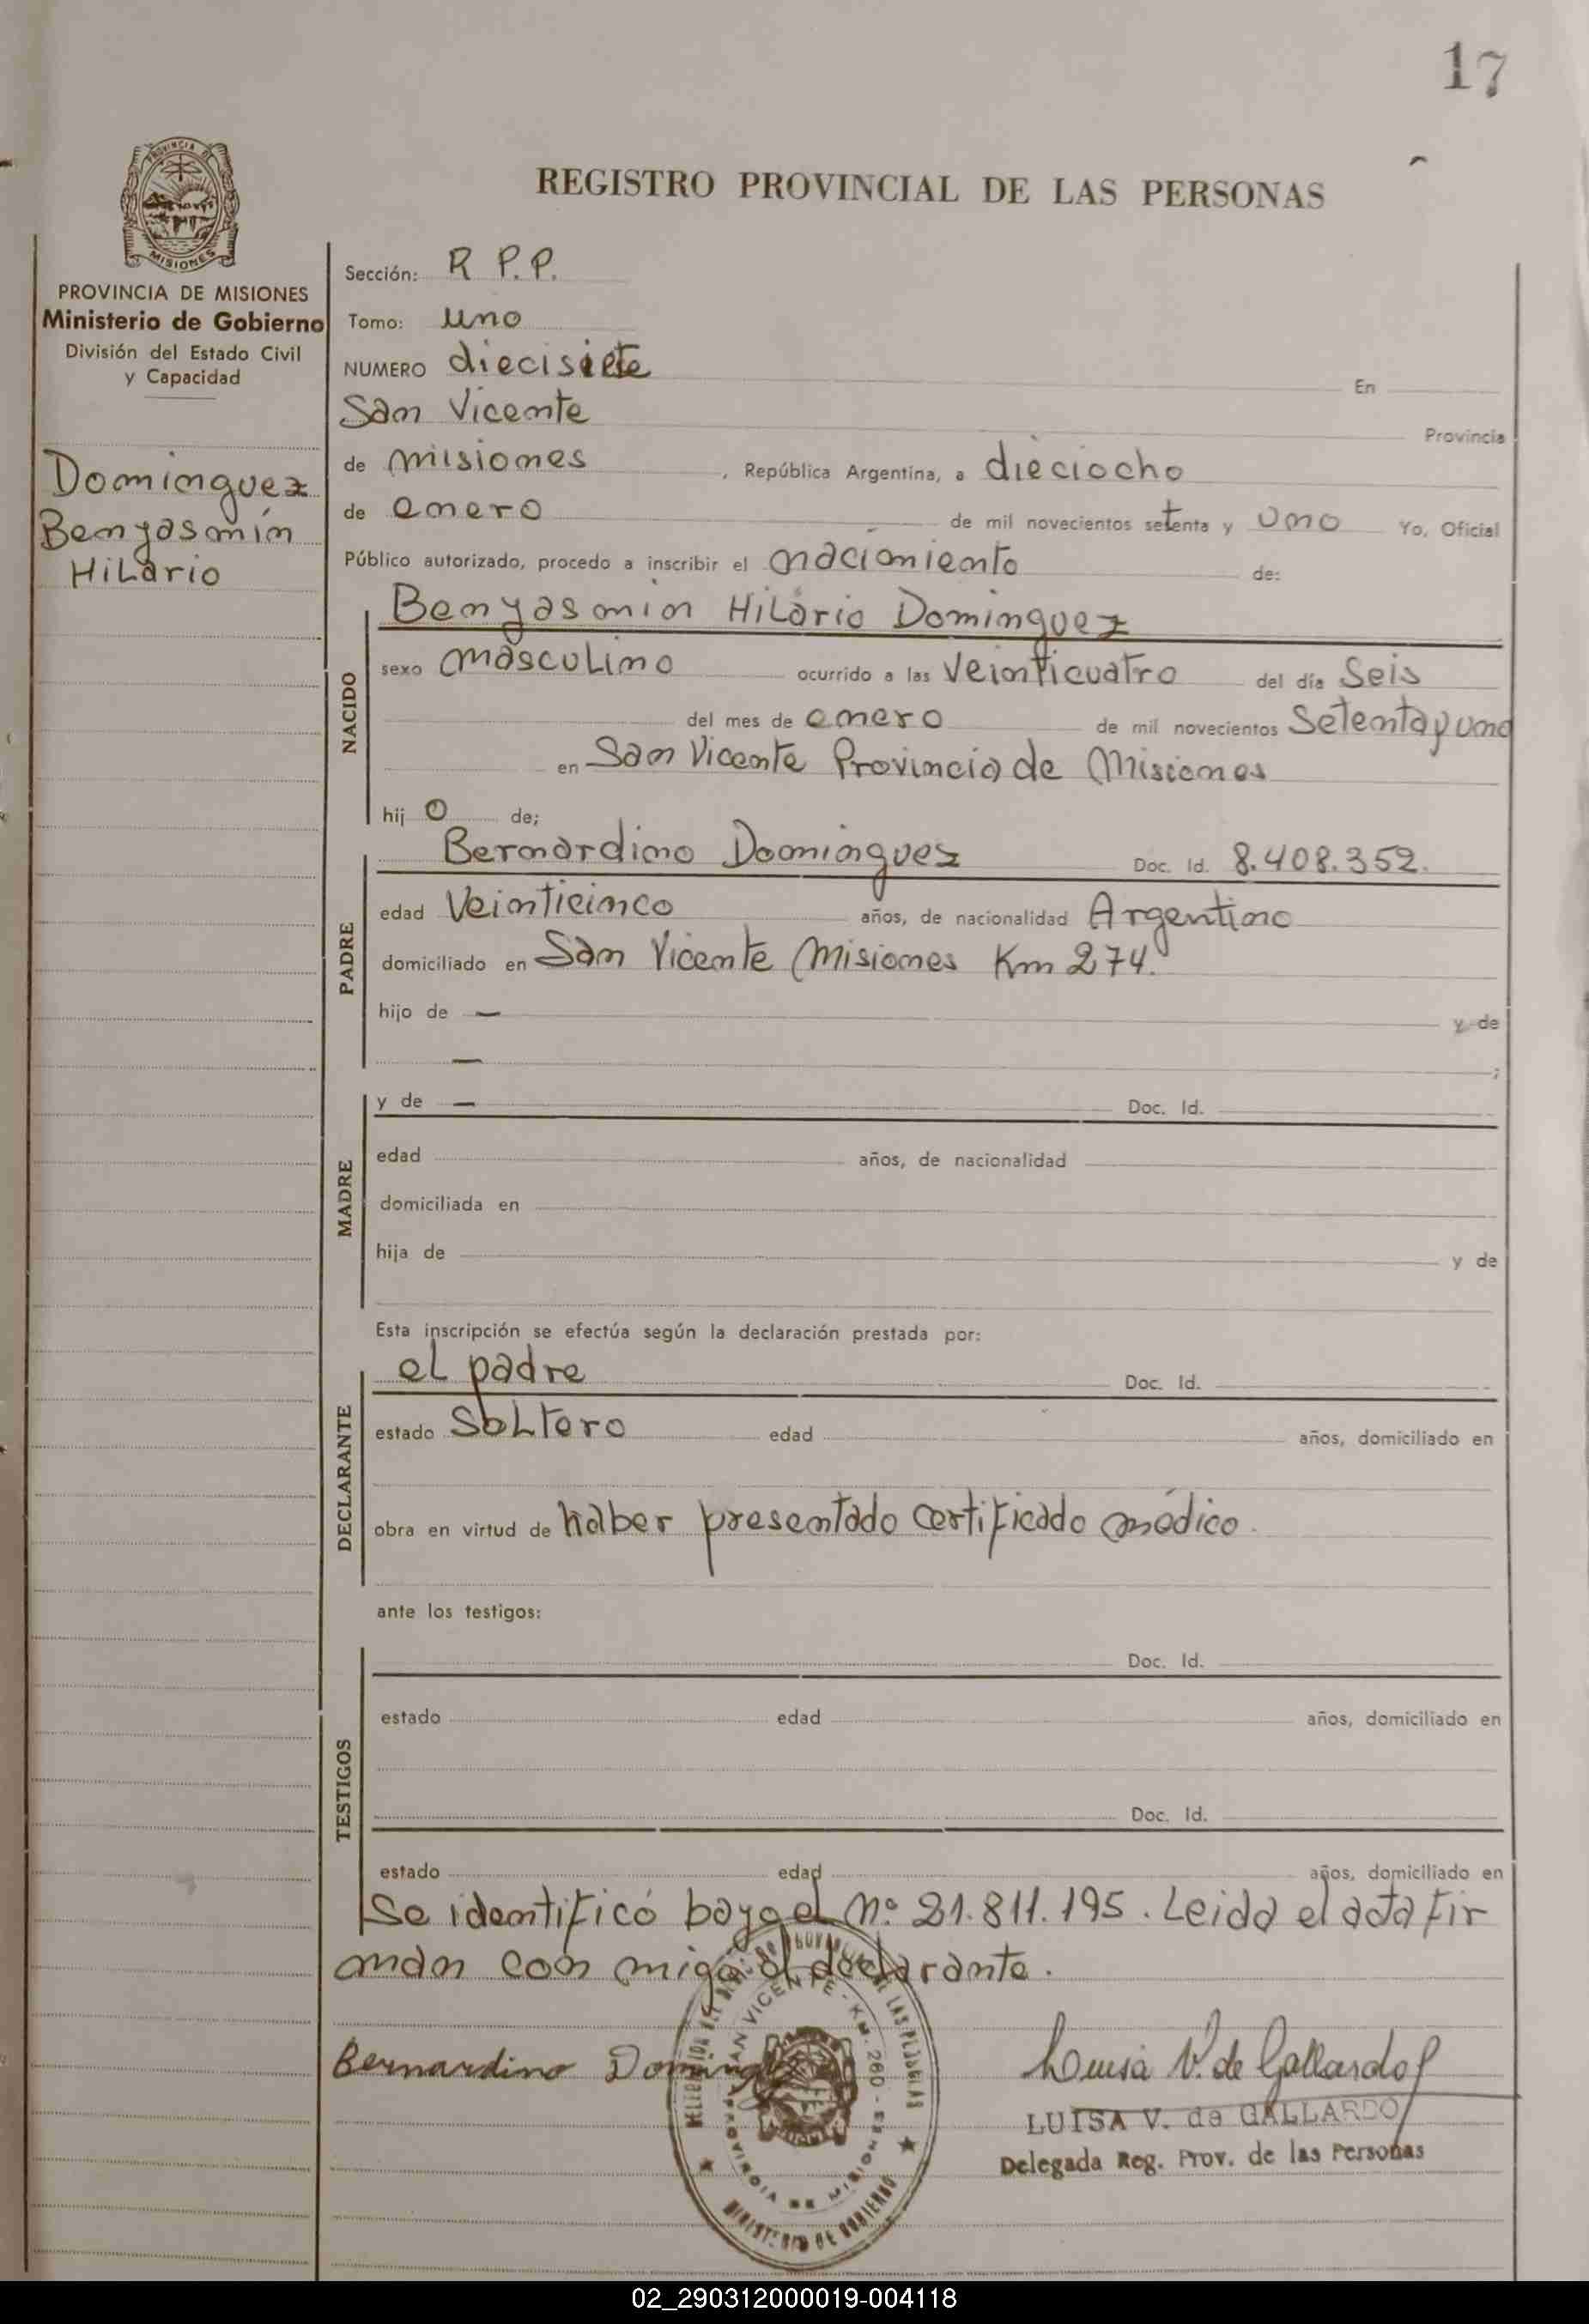 17
PROVINCIA DE
MISIONES
REGISTRO PROVINCIAL DE LAS PERSONAS
PROVINCIA DE MISIONES
Ministerio de Gobierno
División del Estado Civil
y Capacidad
Dominguez
Benyasmín
HiLario
Sección: R P.P.
Tomo: uno
NUMERO diecisiete En
San Vicente Provincia
de misiones, República Argentina, a dieciocho
de enero de mil novecientos setenta y uno Yo, Oficial
Público autorizado, procedo a inscribir el nacimiento de:
Benyasmin HiLario Dominguez
NACIDO
sexo mascuLino ocurrido a las Veinticuatro del día Seis
del mes de enero de mil novecientos Setenta y uno
en San Vicente Provincia de Misiones
hij o de;
PADRE
Bernardino Dominguez Doc. Id. 8.408.352.
edad Veinticinco años, de nacionalidad Argentino
domiciliado en San Vicente Misiones Km 274.
hijo de — y de
— ;
MADRE
y de — Doc. Id.
edad años, de nacionalidad
domiciliada en
hija de y de
Esta inscripción se efectúa según la declaración prestada por:
DECLARANTE
eL padre Doc. Id.
estado SoLtero edad años, domiciliado en
obra en virtud de haber presentado certificado médico.
ante los testigos:
TESTIGOS
Doc. Id.
estado edad años, domiciliado en
Doc. Id.
estado edad años, domiciliado en
Se identificó bayo el nº 21.811.195. Leida el acta fir
man con migo el declarante.
Bernardino Doming
Luisa V. de Gallardo
LUISA V. de GALLARDO
Delegada Reg. Prov. de las Personas
SAN VICENTE - KM. 260 -
PROVINCIA DE MISIONES
MINISTERIO DE GOBIERNO
02_290312000019-004118